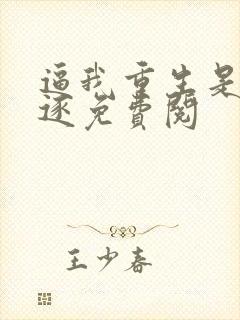 逼我重生是
逐免费阅
王少春